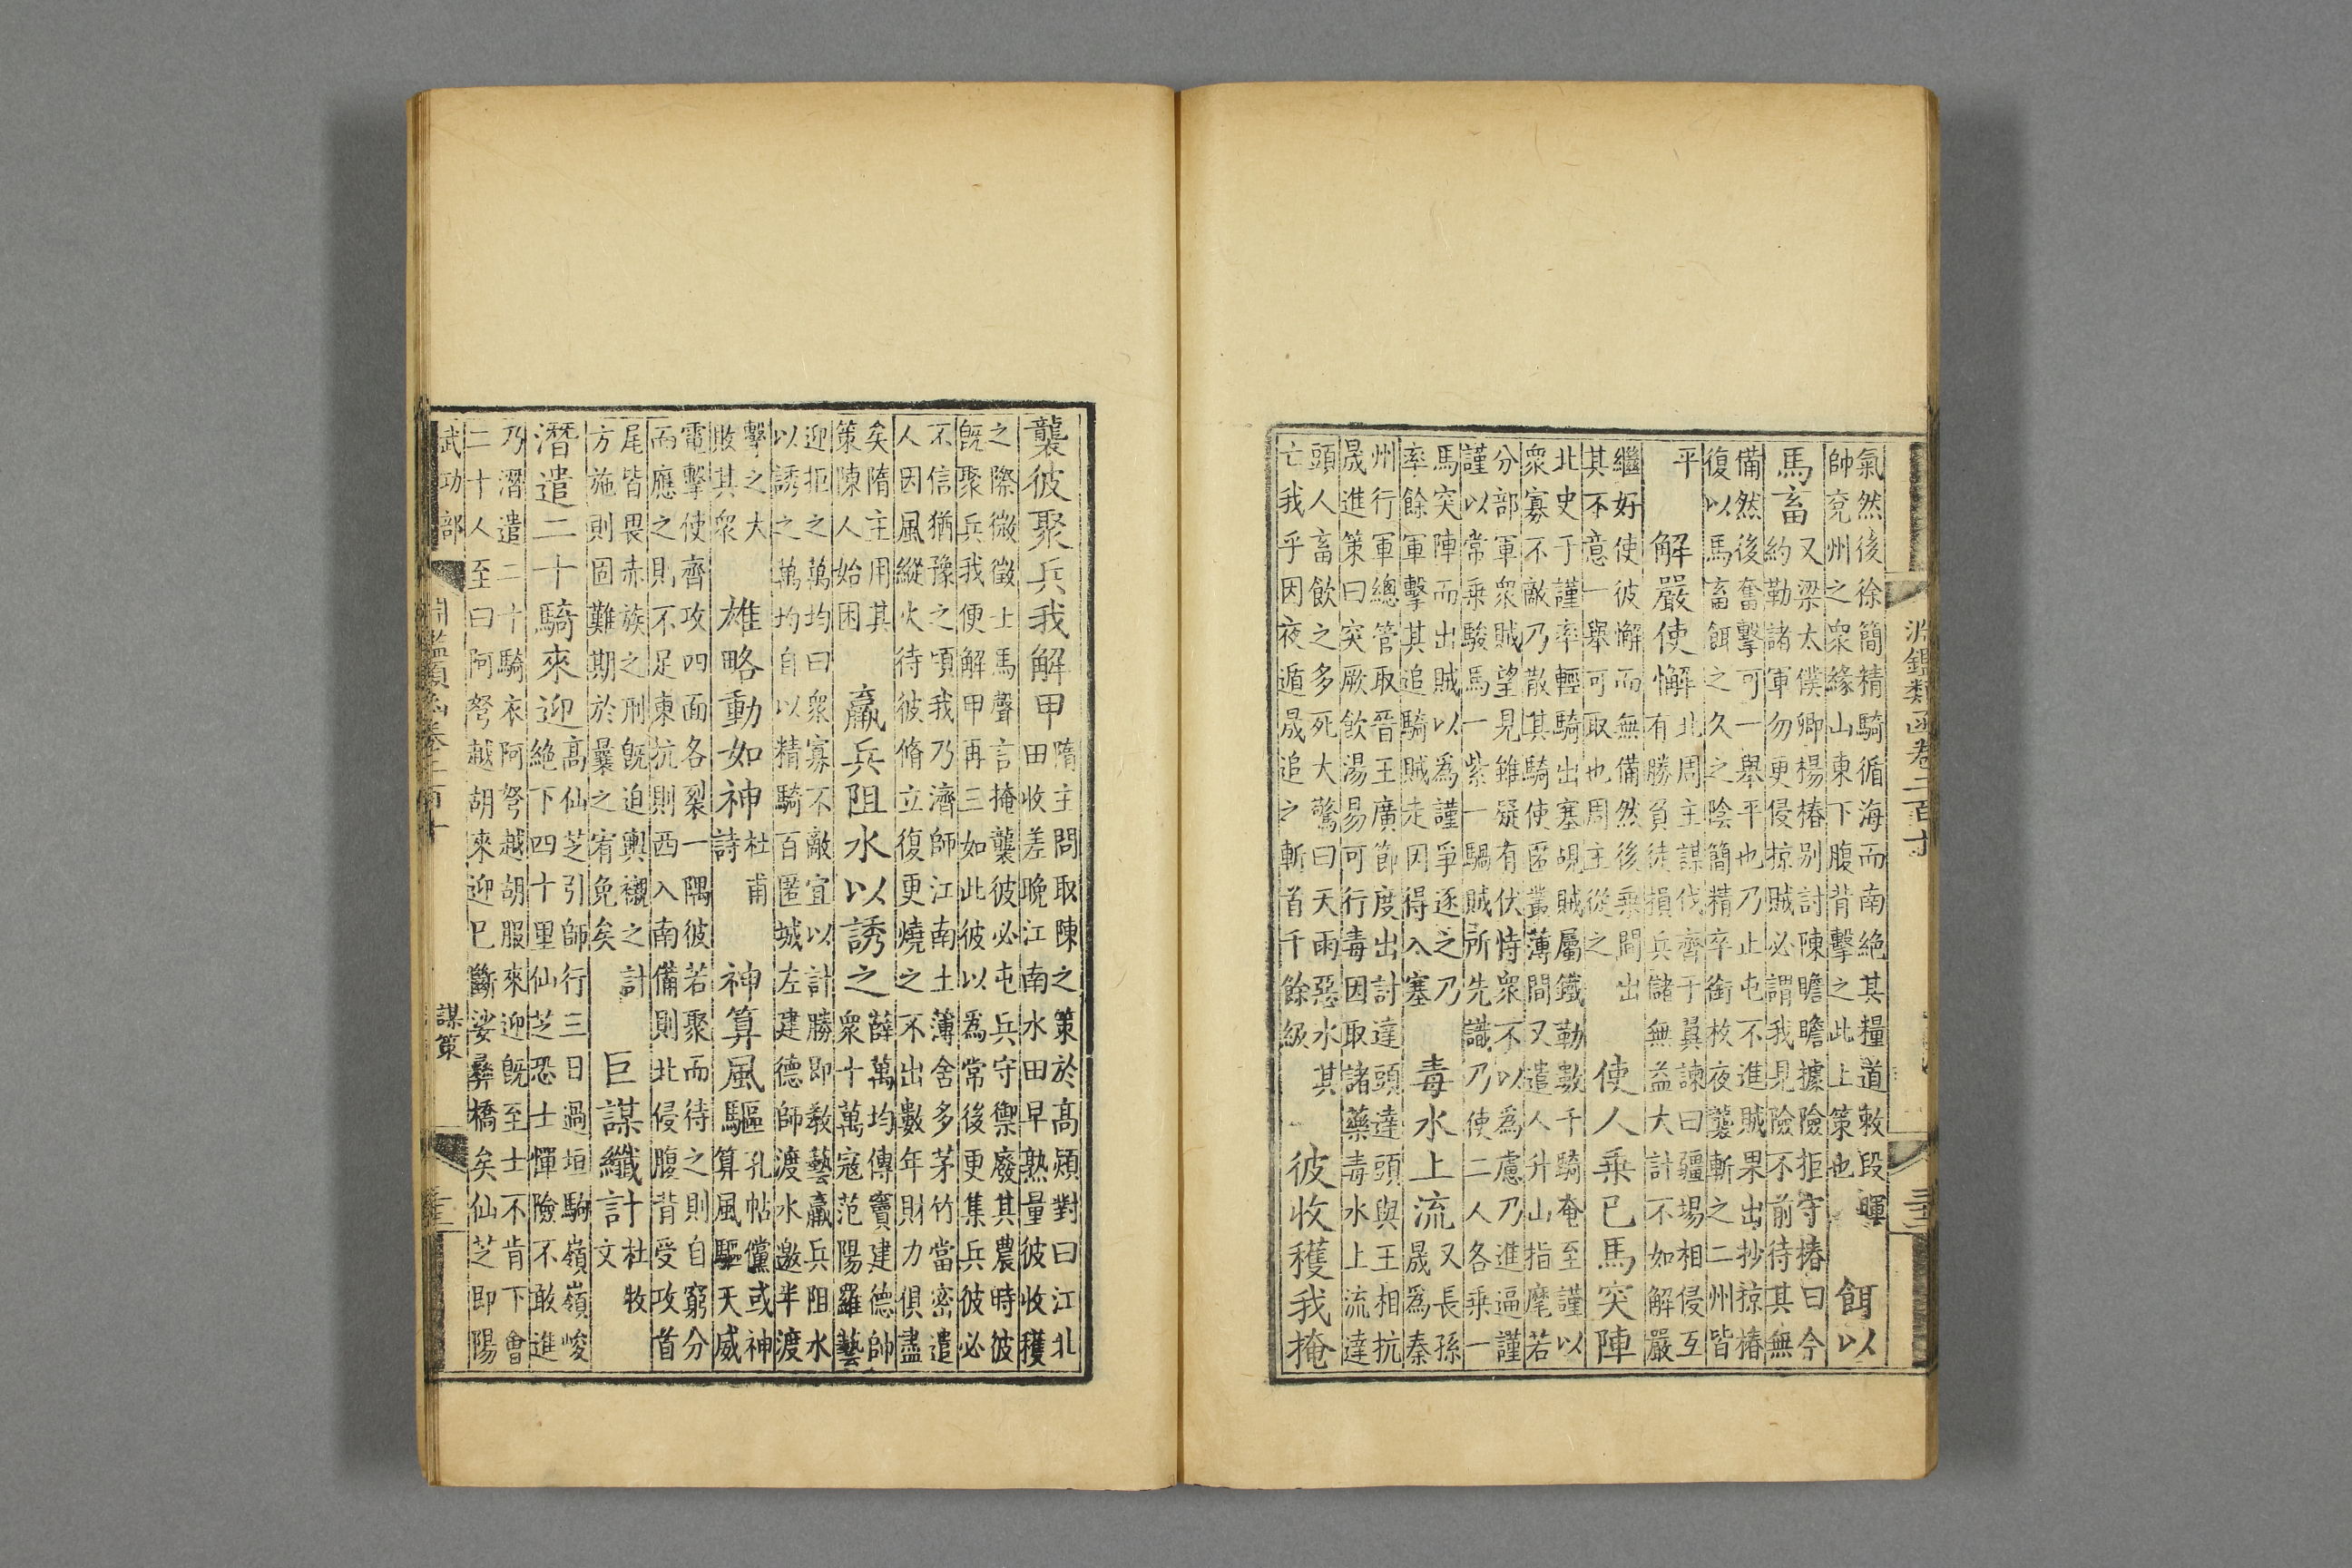 淵鑑類函卷二百十
氣然後徐簡精騎循海而南絕其糧道敕段暉
帥兖州之衆緣山東下腹背擊之此上策也
餌以
馬畜
又梁太僕卿楊椿别討陳瞻瞻據險拒守椿曰今
約勒諸軍勿更侵掠賊必謂我見險不前待其無
備然後奮擊可一舉平也乃止屯不進賊果出抄掠椿
復以馬畜餌之久之陰簡精卒銜枚夜襲斬之二州皆
平
解嚴使懈
北周主謀伐齊于翼諫曰疆場相侵互
有勝負徒損兵儲無益大計不如解嚴
繼好使彼懈而無備然後乘間出
其不意一舉可取也周主從之
使人乘已馬突陣
北史于謹率輕騎出塞覘賊屬鐵勒數千騎奄至謹以
衆寡不敵乃散其騎使匿叢薄間又遣人升山指麾若
分部軍衆賊望見雖疑有伏恃衆不以為慮乃進逼謹
謹以常乘駿馬一紫一騧賊所先識乃使二人各乘一
馬突陣而出賊以為謹爭逐之乃
率餘軍擊其追騎賊走因得入塞
毒水上流
又長孫
晟為秦
州行軍總管取晉王廣節度出討達頭達頭與王相抗
晟進策曰突厥飲湯易可行毒因取諸藥毒水上流達
頭人畜飲之多死大驚曰天雨惡水其
亡我乎因夜遁晟追之斬首千餘級
彼收穫我掩
襲彼聚兵我解甲
隋主問取陳之策於高熲對曰江北
田收差晚江南水田早熟量彼收穫
之際微徵上馬聲言掩襲彼必屯兵守禦廢其農時彼
既聚兵我便解甲再三如此彼以為常後更集兵彼必
不信猶豫之頃我乃濟師江南土薄舍多茅竹當密遣
人因風縱火待彼脩立復更燒之不出數年財力俱盡
矣隋主用其
策陳人始困
羸兵阻水以誘之
薛萬均傳竇建德帥
衆十萬寇范陽羅藝
迎拒之萬均曰衆寡不敵宜以計勝即教藝羸兵阻水
以誘之萬均自以精騎百匿城左建德師渡水邀半渡
擊之大
敗其衆
雄略動如神
杜甫
詩
神算風驅
孔帖儻或神
算風驅天威
電擊使齊攻四面各裂一隅彼若聚而待之則自窮分
而應之則不足東抗則西入南備則北侵腹背受攻首
尾皆畏赤族之刑既迫輿櫬之計
方施則固難期於釁之宥免矣
巨謀纖計
杜牧
文
潛遣二十騎來迎
高仙芝引師行三日過垣駒嶺嶺峻
絕下四十里仙芝恐士憚險不敢進
乃潛遣二十騎衣阿弩越胡服來迎既至士不肯下會
二十人至曰阿弩越胡來迎已斷娑彝橋矣仙芝即陽
武功部
謀策